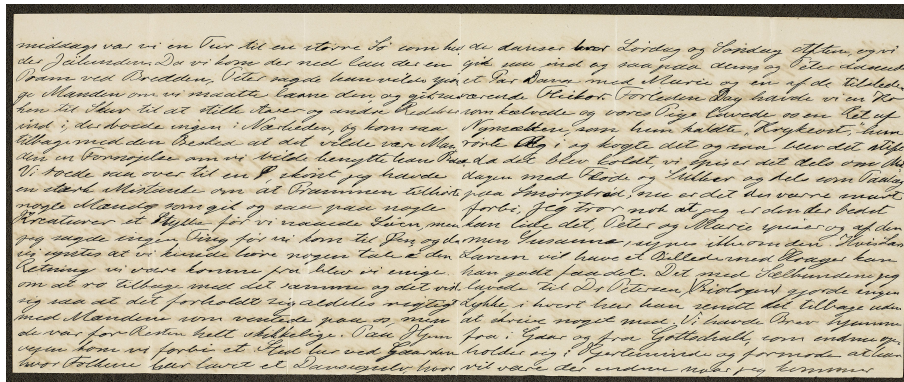 middags var vi en Tur til en større Sø som hed
der Jälunden. Da vi kom der ned laa der en
Pram ved Bredden, Peter sagde han vilde spør
ge Manden om vi maatte laane den, og gik saa
hen til Skur til at stille Aarer og andre Redskber
ind i, der boede ingen i Nærheden, og kom saa
tilbage med den Besked at det vilde være Man
den en Fornøjelse om vi vilde benytte hans Pram
Vi roede saa over til en Ø, skönt jeg havde
en stærk Mistanke om at Prammen tilhørte
nogle Mænd som gik og saa paa nogle
Kreaturer et Stykke før vi naaede Söen, men
jeg sagde ingen Ting før vi kom til Øen og da
vi syntes at vi kunde høre nogen tale i den
Retning vi vare komne fra blev vi enige
om at ro tilbage med det samme og det vis
te sig saa at det forholdt sig aldeles rigtigt
med Mændene som ventede paa os, men
de var for Resten helt skikkelige. Paa Hjem
vejen kom vi forbi et Sted her ved Gaarden
hvor Folkene har lavet et Dansegulv, hvor
de danser hver Lørdag og Søndag Aften, og vi
gik saa ind og saa paa dem, og Peter dansede
et Par Danse med Marie og en af de tilstede
værende Piger. Forleden Dag havde vi en Ko
som kælvede og vores Pige lavede os en Ret af
Nymælken, som hun kaldte "Kryckost", hun
rörte Æg i og kogte det og saa blev det stift
da det blev koldt vi spiste det dels om Mid
dagen med Fløde og Sukker og dels som Paalæg
paa Smörgbröd, nu er det desværre snart
forbi. Jeg tror nok at jeg er den der bedst
kan lide det, Peter og Marie spiser og af den
men Susanne, synes ikke om den. Hvis
Lauren vil have et Billede med Krager kan
han godt faa det. Det med Sælhundene jeg
lavede til Dr Petersen (Biologen) gjorde ingen
Lykke i hvert her han sendt det tilbage uden
at skrive noget med. Vi havde Brev hjemme
fra i Gaar og fra Gottschalk, som endnu op
holder sig i Kjerteminde og formoder at han
vil være der endnu naar jeg kommer